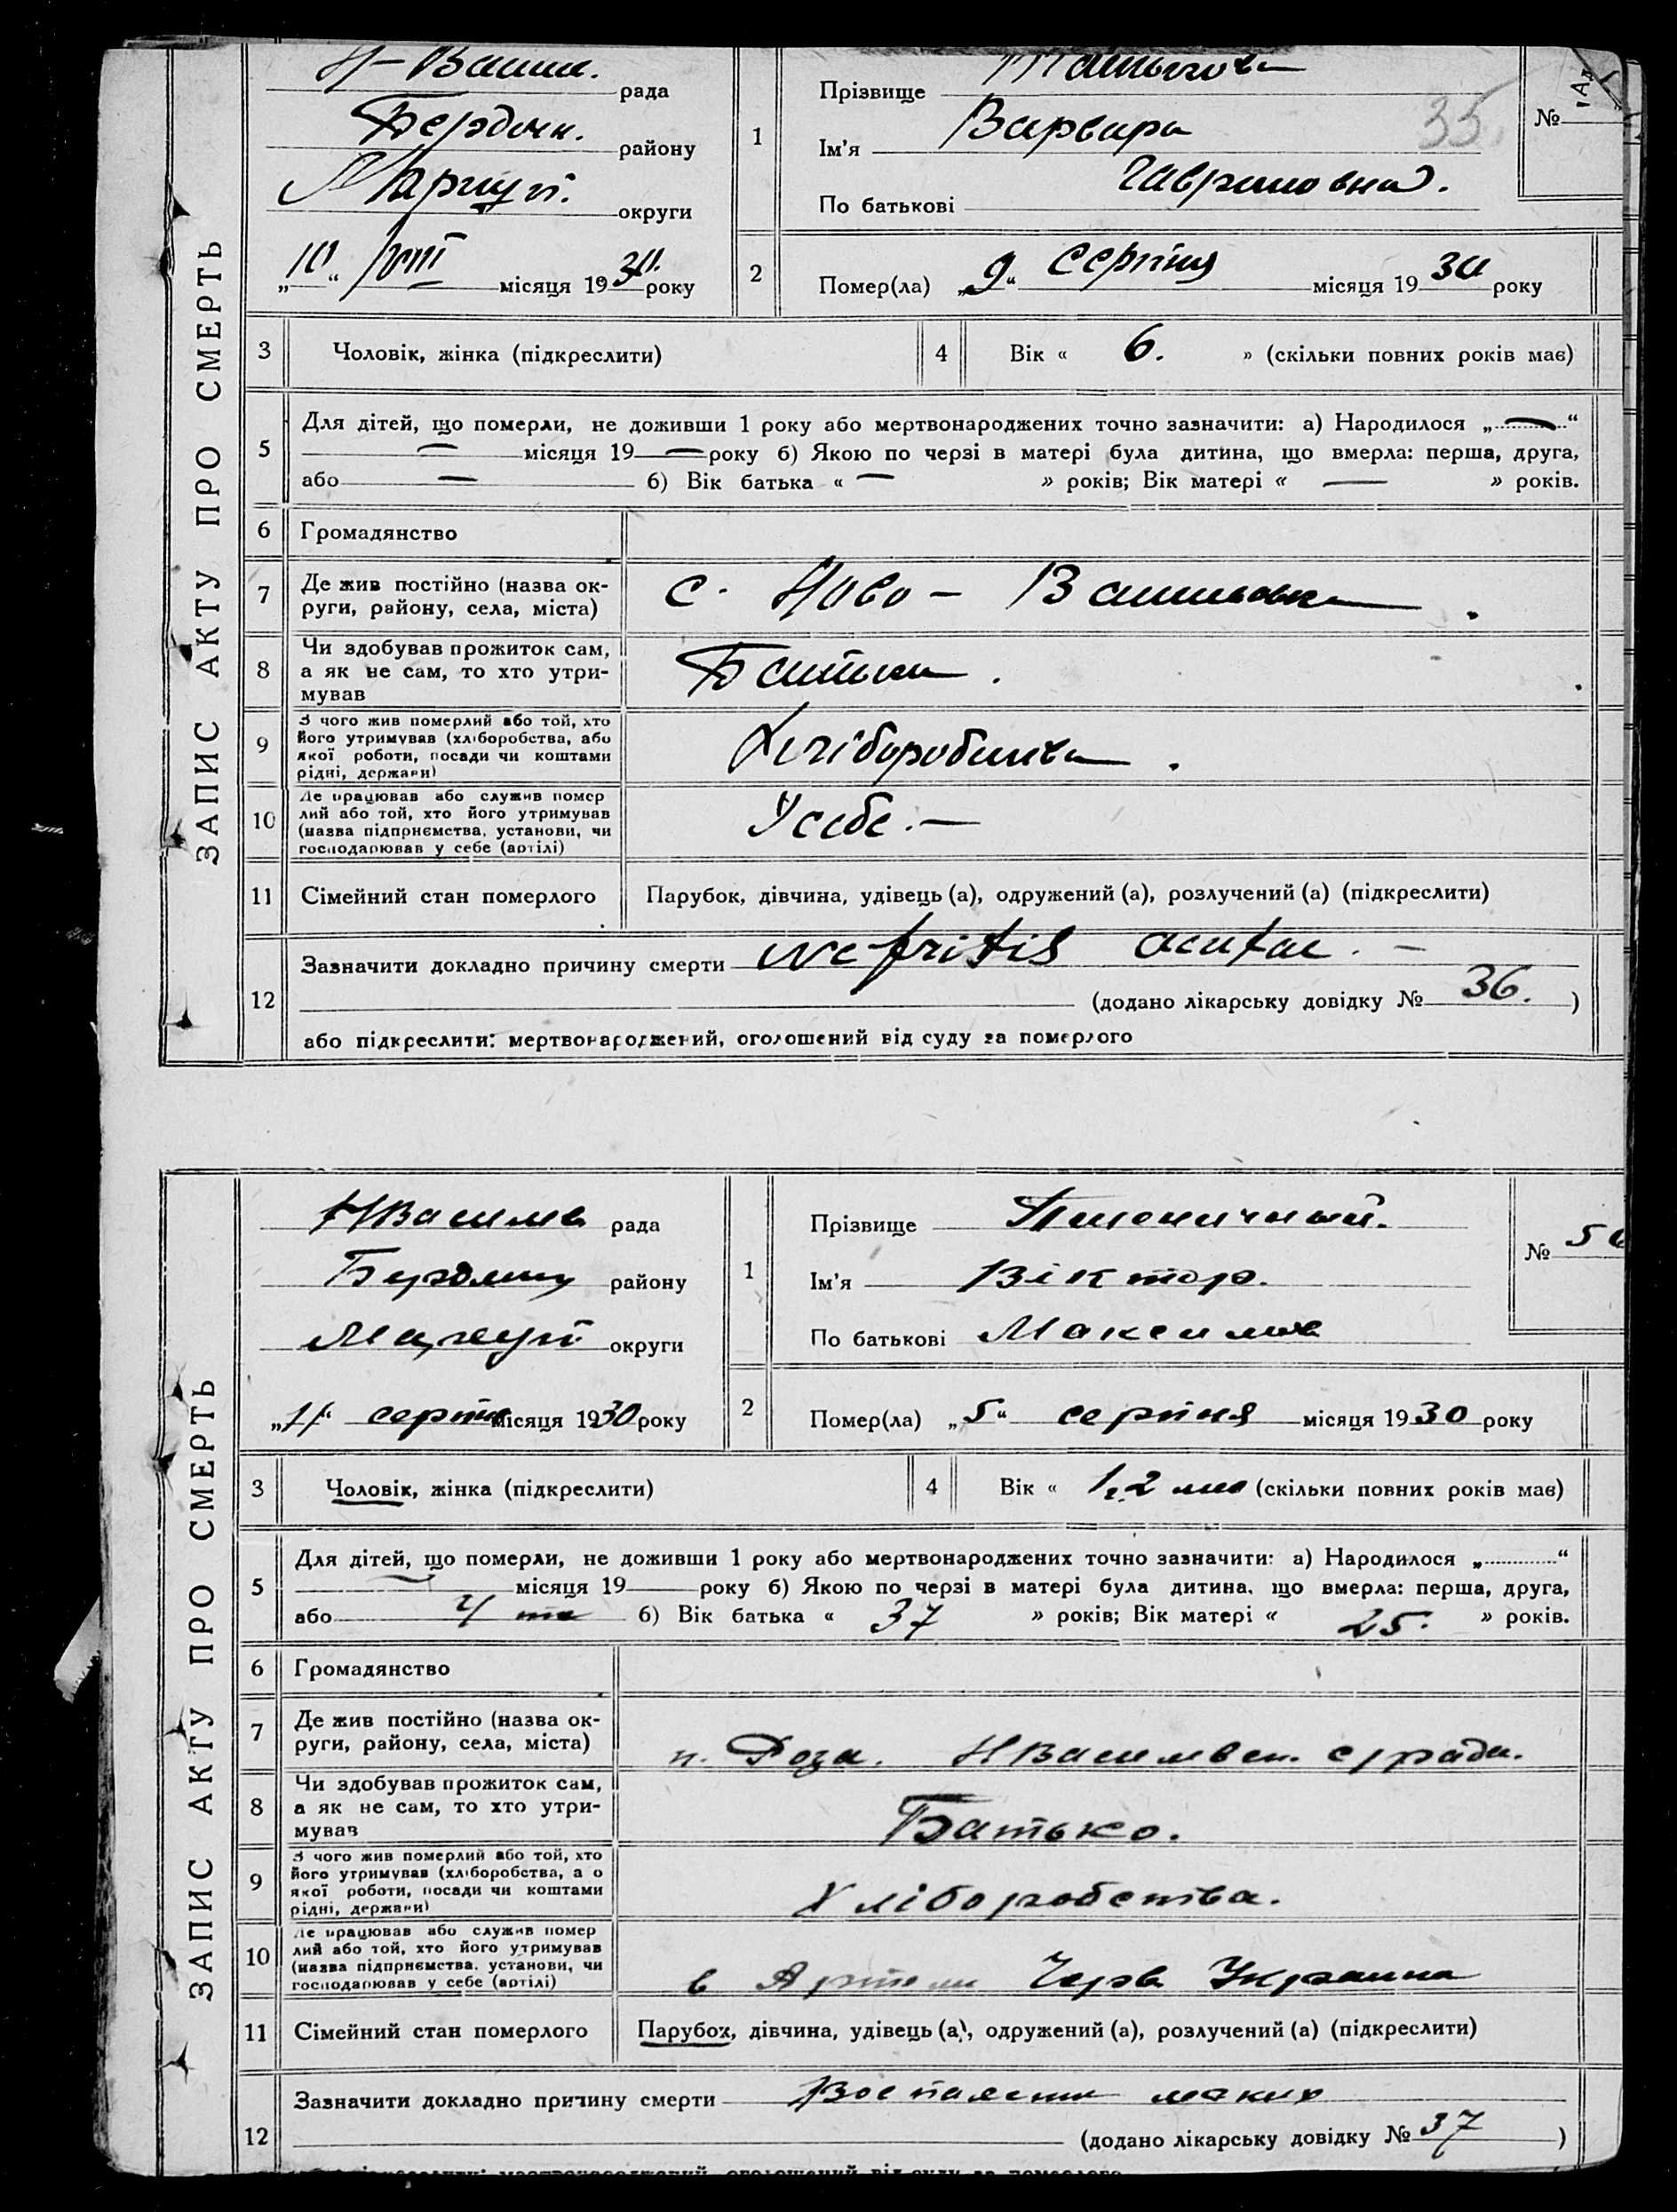 Н-Васил. рада
Бердян. району
Маріуп. округи
„10“ VIII місяця 1930. року
ЗАПИС АКТУ ПРО СМЕРТЬ
1
Прізвище
35
Ім'я Варвара
По батькові Гавриловна.
№
2
Помер(ла) „9“ серпня місяця 1930 року
3 Чоловік, жінка (підкреслити)
4 Вік « 6. » (скільки повних років має)
5
Для дітей, що померли, не доживши 1 року або мертвонароджених точно зазначити: а) Народилося „—“
— місяця 19— року б) Якою по черзі в матері була дитина, що вмерла: перша, друга,
або — б) Вік батька « — » років; Вік матері « — » років.
6 Громадянство
7 Де жив постійно (назва ок-
руги, району, села, міста)
с. Ново - Васильовка.
8 Чи здобував прожиток сам,
а як не сам, то хто утри-
мував
Батьки.
9 З чого жив померлий або той, хто
його утримував (хліборобства, або
якої роботи, посади чи коштами
рідні, держави)
Хліборобства.
10 Де працював або служив помер
лий або той, хто його утримував
(назва підприємства, установи, чи
господарював у себе (артілі)
У себе. —
11 Сімейний стан померлого Парубок, дівчина, удівець (а), одружений (а), розлучений (а) (підкреслити)
12
Зазначити докладно причину смерти Nefritis acutae. —
(додано лікарську довідку № 36. )
або підкреслити: мертвонароджений, оголошений від суду за померлого
НВасилів рада
Бердянц району
Маріуп округи
серпня місяця 1930 року
ЗАПИС АКТУ ПРО СМЕРТЬ
1
Прізвище Пшеничный.
Ім'я Віктор.
По батькові Максимов
№ 5
2
Помер(ла) „5“ серпня місяця 1930 року
3 Чоловік, жінка (підкреслити)
4 Вік « 1, 2 (скільки повних років має)
5
Для дітей, що померли, не доживши 1 року або мертвонароджених точно зазначити: а) Народилося „ “
місяця 19 року б) Якою по черзі в матері була дитина, що вмерла: перша, друга,
або 4 та б) Вік батька « 37 » років; Вік матері « 25. » років.
6 Громадянство
7 Де жив постійно (назва ок-
руги, району, села, міста)
п. Роза. НВасилівск. с/рада.
8 Чи здобував прожиток сам,
а як не сам, то хто утри-
мував
Батько.
9 З чого жив померлий або той, хто
його утримував (хліборобства, а о
якої роботи, посади чи коштами
рідні, держави)
Хліборобства.
10 Де працював або служив помер
лий або той, хто його утримував
(назва підприємства, установи, чи
господарював у себе (артілі)
в Артели Черв Украина
11 Сімейний стан померлого Парубок, дівчина, удівець (а), одружений (а), розлучений (а) (підкреслити)
12
Зазначити докладно причину смерти Воспаление
(додано лікарську довідку № 37 )